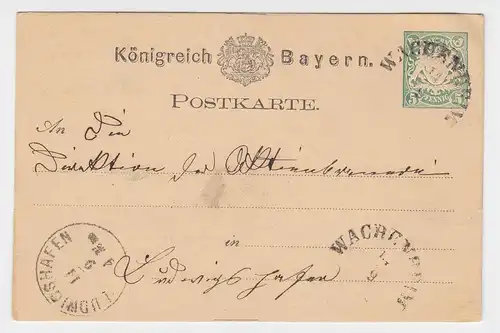 Königreich Bayern.
WACHENHEIM
PFENNIG
POSTKARTE.
An Die
Direktion der Aktienbrauerei
in
WACHENHEIM
Ludwigshafen
LUDWIGSHAFEN